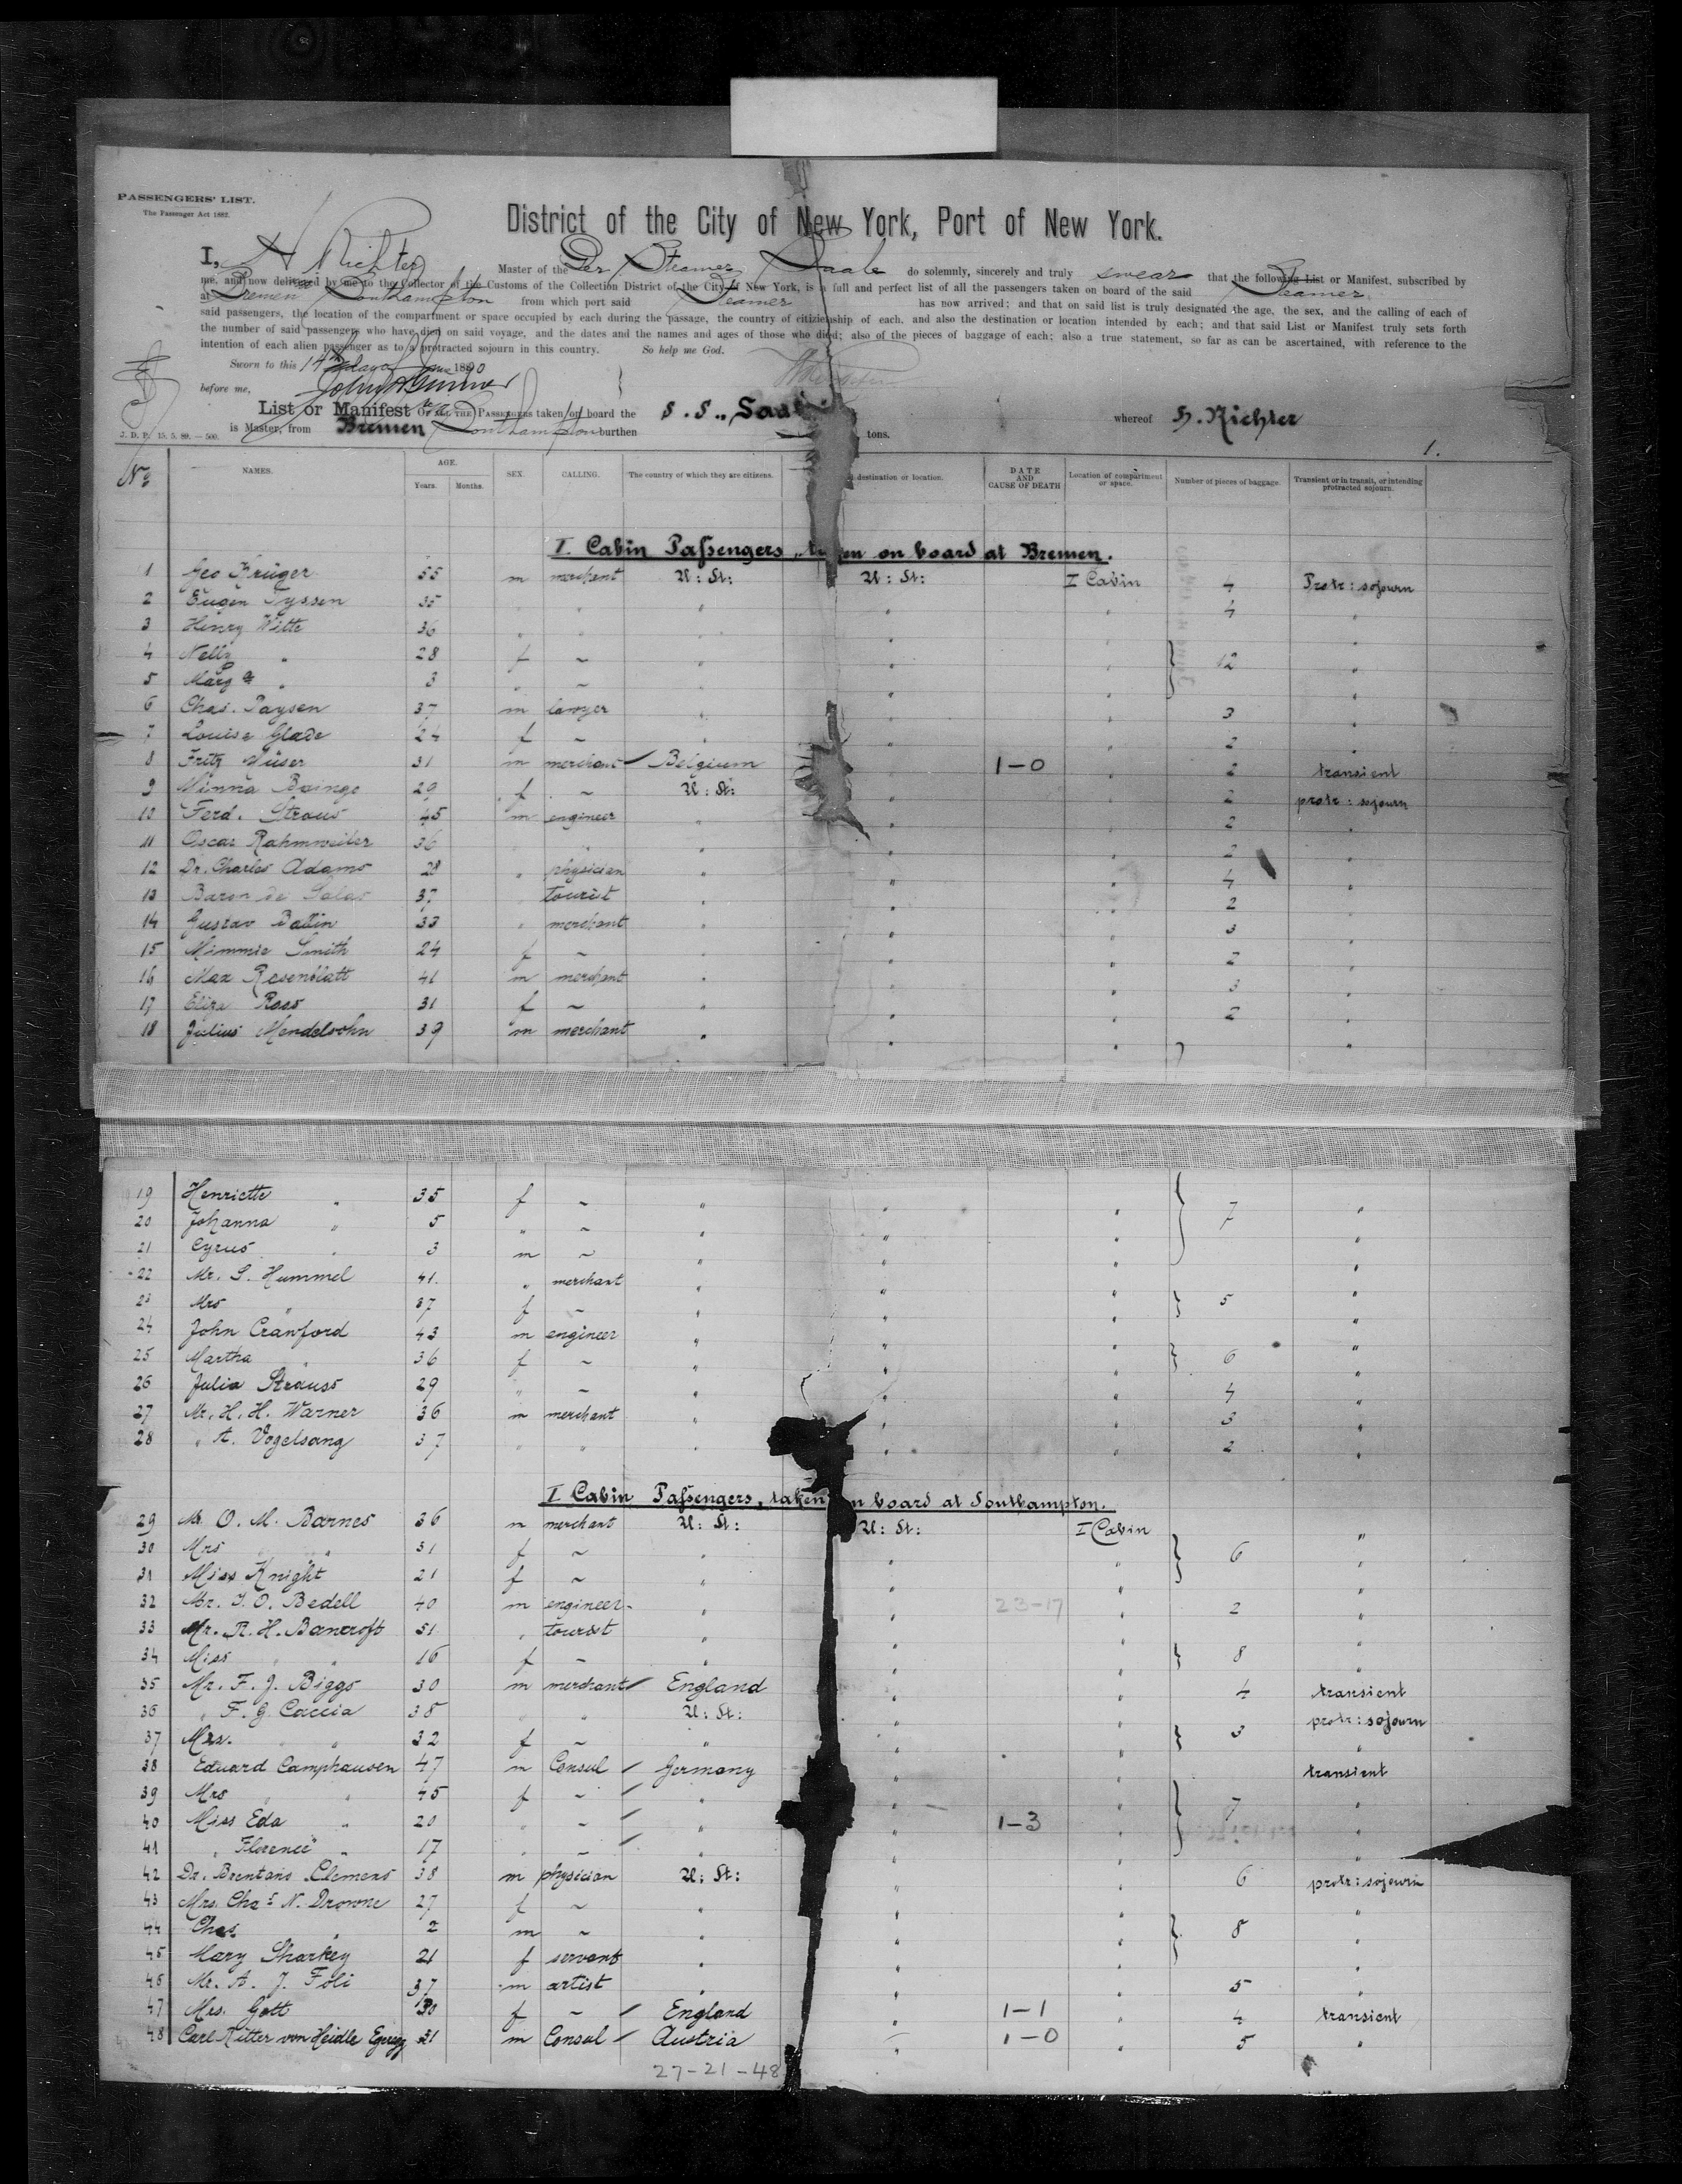 PASSENGERS' LIST.
The Passenger Act 1882.
District of the City of New York, Port of New York.
I, H Richter Master of the Ger Steamer Saale do solemnly, sincerely and truly swear that the following List or Manifest, subscribed by
me, and now delivered by me to the Collector of the Customs of the Collection District of the City of New York, is a full and perfect list of all the passengers taken on board of the said Steamer
at Bremen Southampton from which port said Steamer has now arrived; and that on said list is truly designated the age, the sex, and the calling of each of
said passengers, the location of the compartment or space occupied by each during the passage, the country of citizienship of each, and also the destination or location intended by each; and that said List or Manifest truly sets forth
the number of said passengers who have died on said voyage, and the dates and the names and ages of those who died; also of the pieces of baggage of each; also a true statement, so far as can be ascertained, with reference to the
intention of each alien passenger as to a protracted sojourn in this country. So help me God.
Sworn to this 14th day of June 1890
before me,
List or Manifest OF ALL THE PASSENGERS taken on board the S.S. „ Saale whereof H. Richter
is Master, from Bremen Southampton burthen tons.
J. D. P. 15. 5. 89. — 500.
1.
No NAMES. AGE. Years. Months. SEX. CALLING. The country of which they are citizens. destination or location. DATE AND CAUSE OF DEATH Location of compartiment or space. Number of pieces of baggage. Transient or in transit, or intending protracted sojourn.
I. Cabin Passengers, taken on board at Bremen.
1 Geo Krüger 55 m merchant U: St: U: St: I Cabin 4 Protr: sojourn
2 Eugen Tyssen 35 " " " " " 4 "
3 Henry Witte 36 " " " " " "
4 Nelly " 28 f ~ " " " 12 "
5 Marg " 3 " ~ " " " "
6 Chas. Paysen 37 m lawyer " " " 3 "
7 Louise Glade 24 f ~ " " " 2 "
8 Fritz Müser 31 m merchant Belgium " 1-0 " 2 transient
9 Minna Bainge 29 f ~ U: St: " " 2 protr: sojourn
10 Ferd. Straus 45 m engineer " " " 2 "
11 Oscar Rahmweiler 36 " " " " " 2 "
12 Dr. Charles Adams 28 " physician " " " 4 "
13 Baron de Salas 37 " tourist " " " 2 "
14 Gustav Ballin 33 " merchant " " " 3 "
15 Mimmie Smith 24 f ~ " " " 2 "
16 Max Rosenblatt 41 m merchant " " " 3 "
17 Eliza Rees 31 f ~ " " " 2 "
18 Julius Mendelsohn 39 m merchant " " " "
19 Henriette " 35 f ~ " " " 7 "
20 Johanna " 5 " ~ " " " "
21 Cyrus " 3 m ~ " " " "
22 Mr. S. Hummel 41. " merchant " " " "
23 Mrs " 37 f ~ " " " 5 "
24 John Cranford 43 m engineer " " " "
25 Martha " 36 f ~ " " " 6 "
26 Julia Strauss 29 " ~ " " " 4 "
27 Mr. H. H. Warner 36 m merchant " " " 3 "
28 " A. Vogelsang 37 " " " " " 2 "
I Cabin Passengers, taken on board at Southampton.
29 Mr. O. M. Barnes 36 m merchant U: St: U: St: I Cabin "
30 Mrs " 31 f ~ " " " 6 "
31 Miss Knight 21 f ~ " " " "
32 Mr. T. O. Bedell 40 m engineer " " 23-17 " 2 "
33 Mr. R. H. Bancroft 51 " tourist " " " "
34 Miss " 16 f ~ " " " 8 "
35 Mr. F. J. Biggs 30 m merchant England " " 4 transient
36 " F. G. Caccia 38 " " U: St: " protr: sojourn
37 Mrs. " 32 f ~ " " " 3 "
38 Eduard Camphausen 47 m Consul Germany " transient
39 Mrs " 45 f ~ " " " 7 "
40 Miss Eda " 20 " ~ " " 1-3 " "
41 " Florence " 17 " ~ " " "
42 Dr. Brentano Clemens 38 m physician U: St: " " 6 protr: sojourn
43 Mrs. Chas N. Drowne 27 f ~ " " " "
44 Chas. " 2 m ~ " " " 8 "
45 Mary Sharkey 21 f servant " " " "
46 Mr. A. J. Foli 37 m artist " " " 5 "
47 Mrs. Gott 30 f ~ England " 1-1 " 4 transient
48 Carl Ritter von Heidle 31 m Consul Austria " 1-0 " 5 "
27-21-48